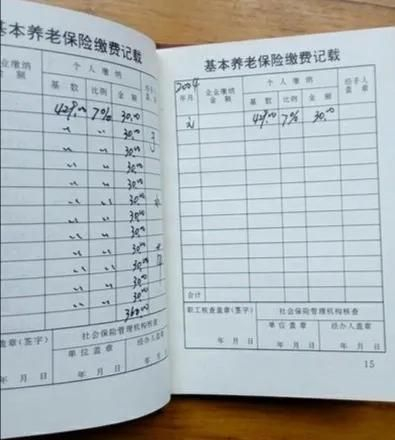 基本养老保险缴费记载
企业缴纳金额 个人缴纳 经手人盖章
基数 比例 金额
429.00 7% 30.00
〃 〃 30.00
〃 〃 30.00
〃 〃 30.00
〃 〃 30.00
〃 〃 30.00
〃 〃 30.00
〃 〃 30.00
〃 〃 30.00
〃 〃 30.00
〃 〃 30.00
〃 〃 30.00
360.00
盖章(签字) 社会保险管理机构核查
单位盖章 经办人盖章
年月日 年月日 年月日
基本养老保险缴费记载
2004年月 企业缴纳金额 个人缴纳 经手人盖章
基数 比例 金额
429.00 7% 30.00
合计
职工核查盖章(签字) 社会保险管理机构核查
单位盖章 经办人盖章
年月日 年月日 年月日
15